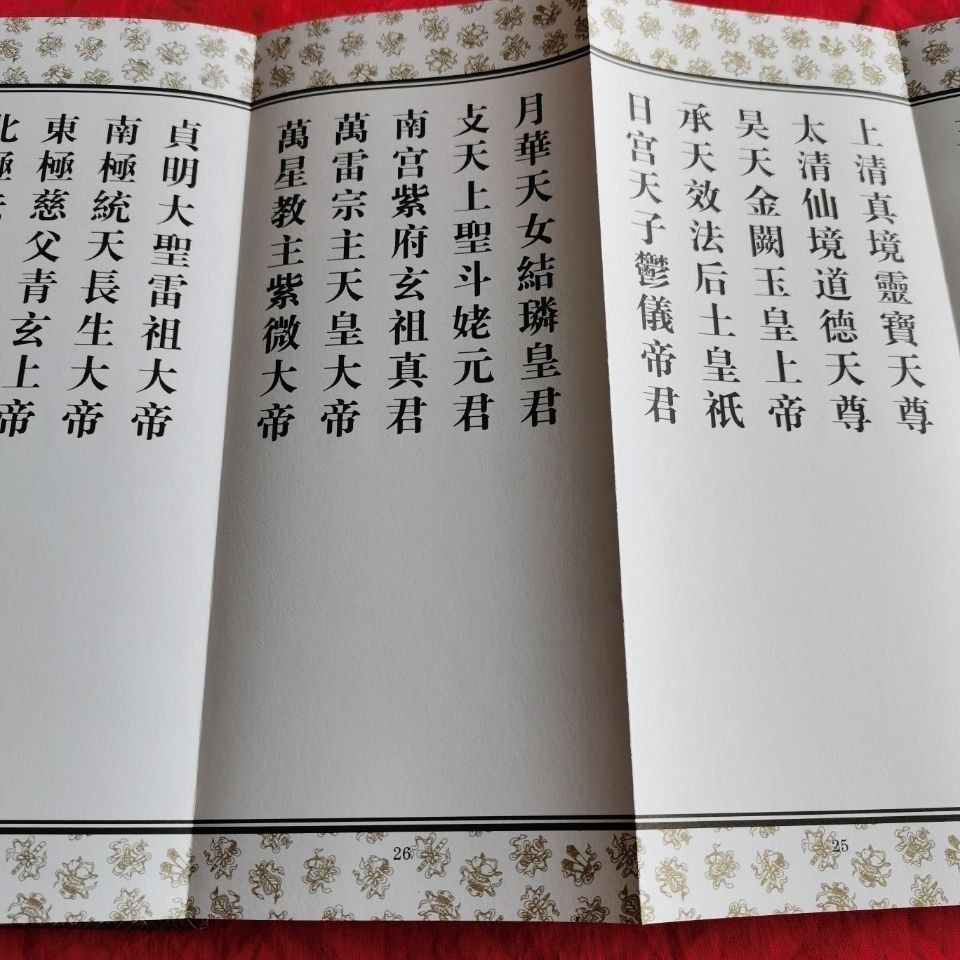 上清真境靈寶天尊
太清仙境道德天尊
昊天金闕玉皇上帝
承天效法后土皇祇
日宮天子鬱儀帝君
25
月華天女結璘皇君
攴天上聖斗姥元君
南宮紫府玄祖真君
萬雷宗主天皇大帝
萬星教主紫微大帝
26
貞明大聖雷祖大帝
南極統天長生大帝
東極慈父青玄上帝
北極